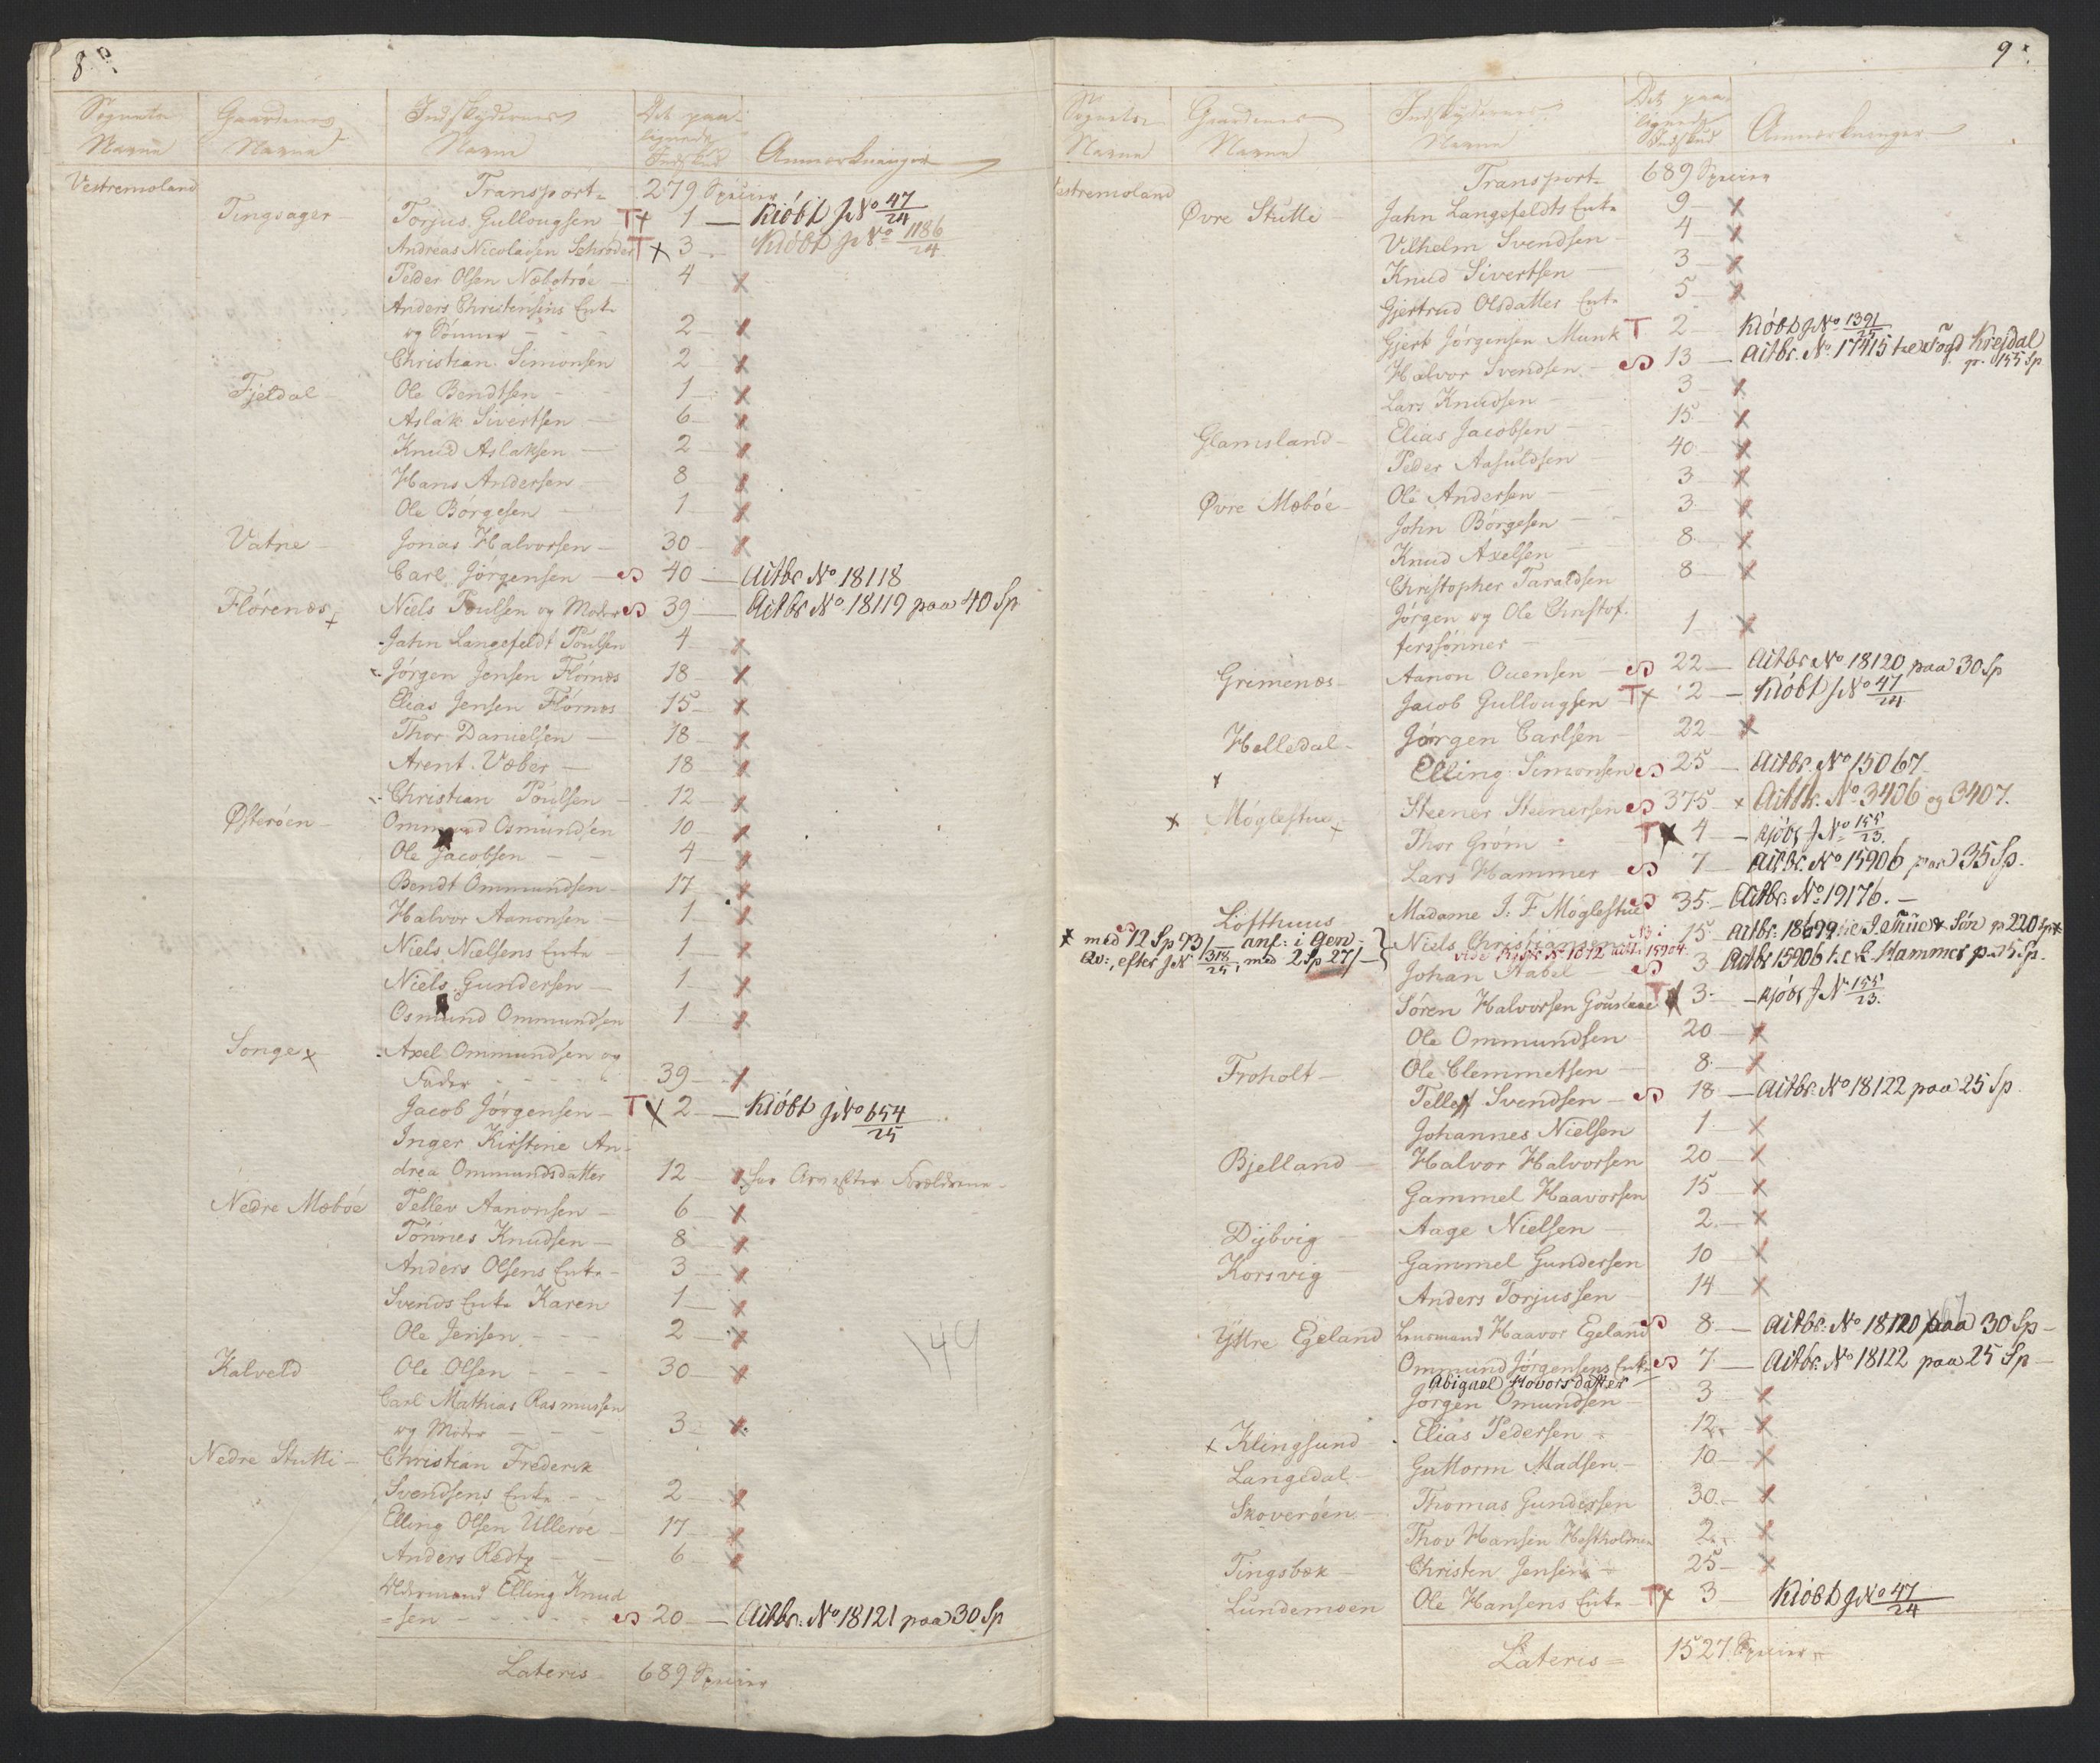 8de
Sognets Navne | Gaardenes Navne | Indskydernes Navne | Det paalignede Indskud | Anmærkninger
Vestremoland | Transport | 279 Specier
Tingsager | Torjus Gullougsen T+ | 1 | Kiöbt J No 47/24
Andreas Nicolaisen Schröder T x | 3 | Kiöbt J No 1186/24
Peder Olsen Næbstrøe | 4 | x
Anders Christensens Enke
og Sönner | 2 | x
Christian Simonsen | 2 | x
Fjeldal | Ole Bendtsen | 1 | x
Aslak Sivertsen | 6 | x
Knud Aslaksen | 2 | x
Hans Andersen | 8 | x
Ole Börgesen | 1 | x
Vatne | Jonas Halvorsen | 30 | x
Carl Jörgensen | 40 | Actbr No 18118
Flörenæs x | Niels Poulsen og Moder | 39 | Actbr No 18119 paa 40 Sp
Jahn Langefeldt Poulsen | 4 | x
Jörgen Jensen Flörnæs | 18 | x
Elias Jensen Flörnæs | 15 | x
Thor Danielsen | 18 | x
Arent Væber | 18 | x
Christian Poulsen | 12 | x
Østeröen | Ommund Osmundsen | 10 | x
Ole Jacobsen | 4 | x
Bendt Ommundsen | 17 | x
Halvor Aanonsen | 1 | x
Niels Nielsens Enke | 1 | x
Niels Gundersen | 1 | x
Osmund Ommundsen | 1 | x
Songe x | Axel Ommundsen og
Fader | 39 | x
Jacob Jörgensen T x | 2 | Kiöbt J No 654/25
Inger Kirstine An-
drea Ommundsdatter | 12 | x som Arv efter Forældrene
Nedre Mæbøe | Tellev Aanonsen | 6 | x
Tönnes Knudsen | 8 | x
Anders Olsens Enke | 3 | x
Svends Enke Karen | 1 | x
Ole Jensen | 2 | x
Kalveld | Ole Olsen | 30 | x
149
Carl Mathias Rasmussen
og Moder | 3 | x
Nedre Stutti | Christian Frederik
Svendsens Enke | 2 | x
Elling Olsen Ulleröe | 17 | x
Anders Redtz | 6 | x
Oldermand Elling Knud
=sen | 20 | Actbr. No 18121 paa 30 Sp
Lateris | 689 Specier
9
Sognets Navne | Gaardenes Navne | Indskydernes Navne | Det paalignede Indskud | Anmærkninger
Vestremoland | Transport | 689 Specier
Øvre Stutti | Jahn Langefeldts Enke | 9 | x
Vilhelm Svendsen | 4 | x
Knud Sivertsen | 3 | x
Gjertrud Olsdatter Enke | 5 | x
Gjert Jörgensen Munk T | 2 | Kiöbt J No 1391/25
Halvor Svendsen | 13 | Actbr. No 17415 Kreidal p. 155 Sp
Lars Knudsen | 3 | x
Glamsland | Elias Jacobsen | 15 | x
Peder Aasuldsen | 40 | x
Øvre Mæbøe | Ole Andersen | 3 | x
John Börgesen | 3 | x
Knud Axelsen | 8 | x
Christopher Taraldsen | 8 | x
Jörgen og Ole Christof-
ferssönner | 1 | x
Grimenæs | Aanon Ouensen | 22 | Actbr No 18120 paa 30 Sp
Jacob Gullougsen T x | 2 | Kiöbt J No 47/24
Helledal | Jörgen Carlsen | 22 | x
Elling Simonsen | 25 | Actbr. No 15067
x Möglestue x | Steener Steenersen | 375 | x Actbr. No 3406 og 3407.
Thor Gröm T | 4 | Kjöbt J No 155/23.
Lars Hammer | 7 | Actbr. No 15906 paa 35 Sp.
Lofthuus | Madame J. F. Möglestue | 35 | Actbr. No 19176.
x med 12 Sp 93/— anf: i Gen- | Niels Christiansen | 15 | Actbr. Sön p 220 Sp x
Qv:, efter J N 1318/25, med 2 Sp 27/— | Johan Stabel | 3 | Actbr 15906 Hammer p. 35 Sp.
Sören Halvorsen T | 3 | Kjöbt J N 155/23.
Ole Ommundsen | 20 | x
Froholt | Ole Clemmetsen | 8 | x
Tellef Svendsen | 18 | Actbr. No 18122 paa 25 Sp
Johannes Nielsen | 1 | x
Bjelland | Halvor Halvorsen | 20 | x
Gammel Haavorsen | 15 | x
Dybvig | Aage Nielsen | 2 | x
Korsvig | Gammel Gundersen | 10 | x
Anders Torjussen | 14 | x
Yttre Egeland | Lensmand Haavor Egeland | 8 | Actbr. No 18120 paa 30 Sp
Ommund Jörgensens Enke | 7 | Actbr. No 18122 paa 25 Sp
Abigael Hovorsdatter
Jörgen Omundsen | 3 | x
x Klingsund | Elias Pedersen | 12 | x
Langedal | Guttorm Madsen | 10 | x
Skoveröen | Thomas Gundersen | 30 | x
Thov Hansen Hestholmen | 2 | x
Tingsbæk | Christen Jensen | 25 | x
Lundemoen | Ole Hansens Enke T x | 3 | Kiöbt J No 47/24
Lateris = | 1527 Specier